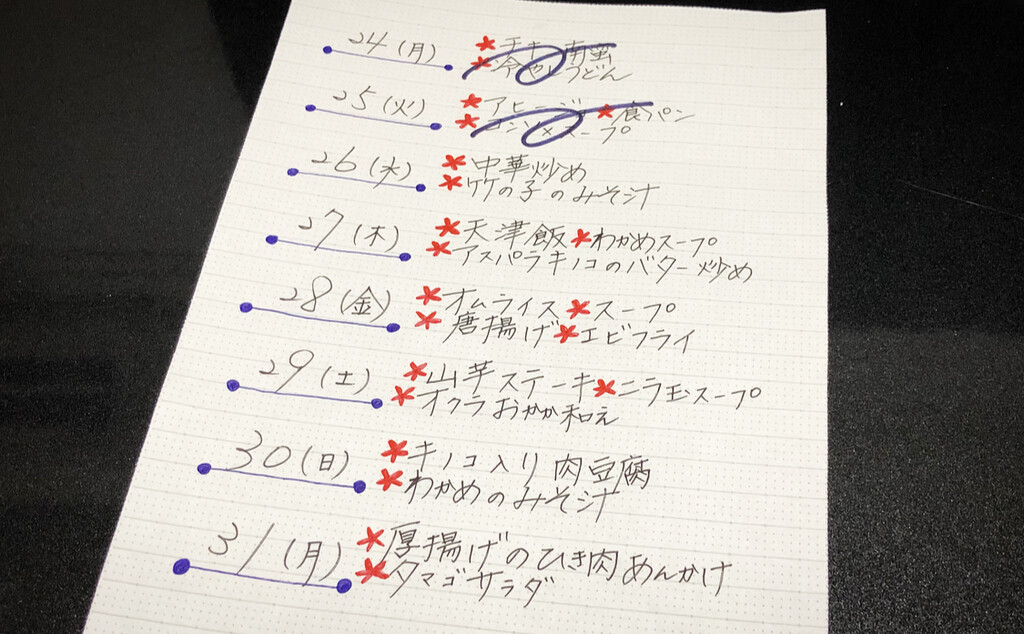 24(月) *チキン南蛮
*冷やしうどん
25(火) *アヒージョ *食パン
*コンソメスープ
26(水) *中華炒め
*竹の子のみそ汁
27(木) *天津飯 *わかめスープ
*アスパラキノコのバター炒め
28(金) *オムライス *スープ
*唐揚げ *エビフライ
29(土) *山芋ステーキ *ニラ玉スープ
*オクラおかか和え
30(日) *キノコ入り肉豆腐
*わかめのみそ汁
31(月) *厚揚げのひき肉あんかけ
*タマゴサラダ